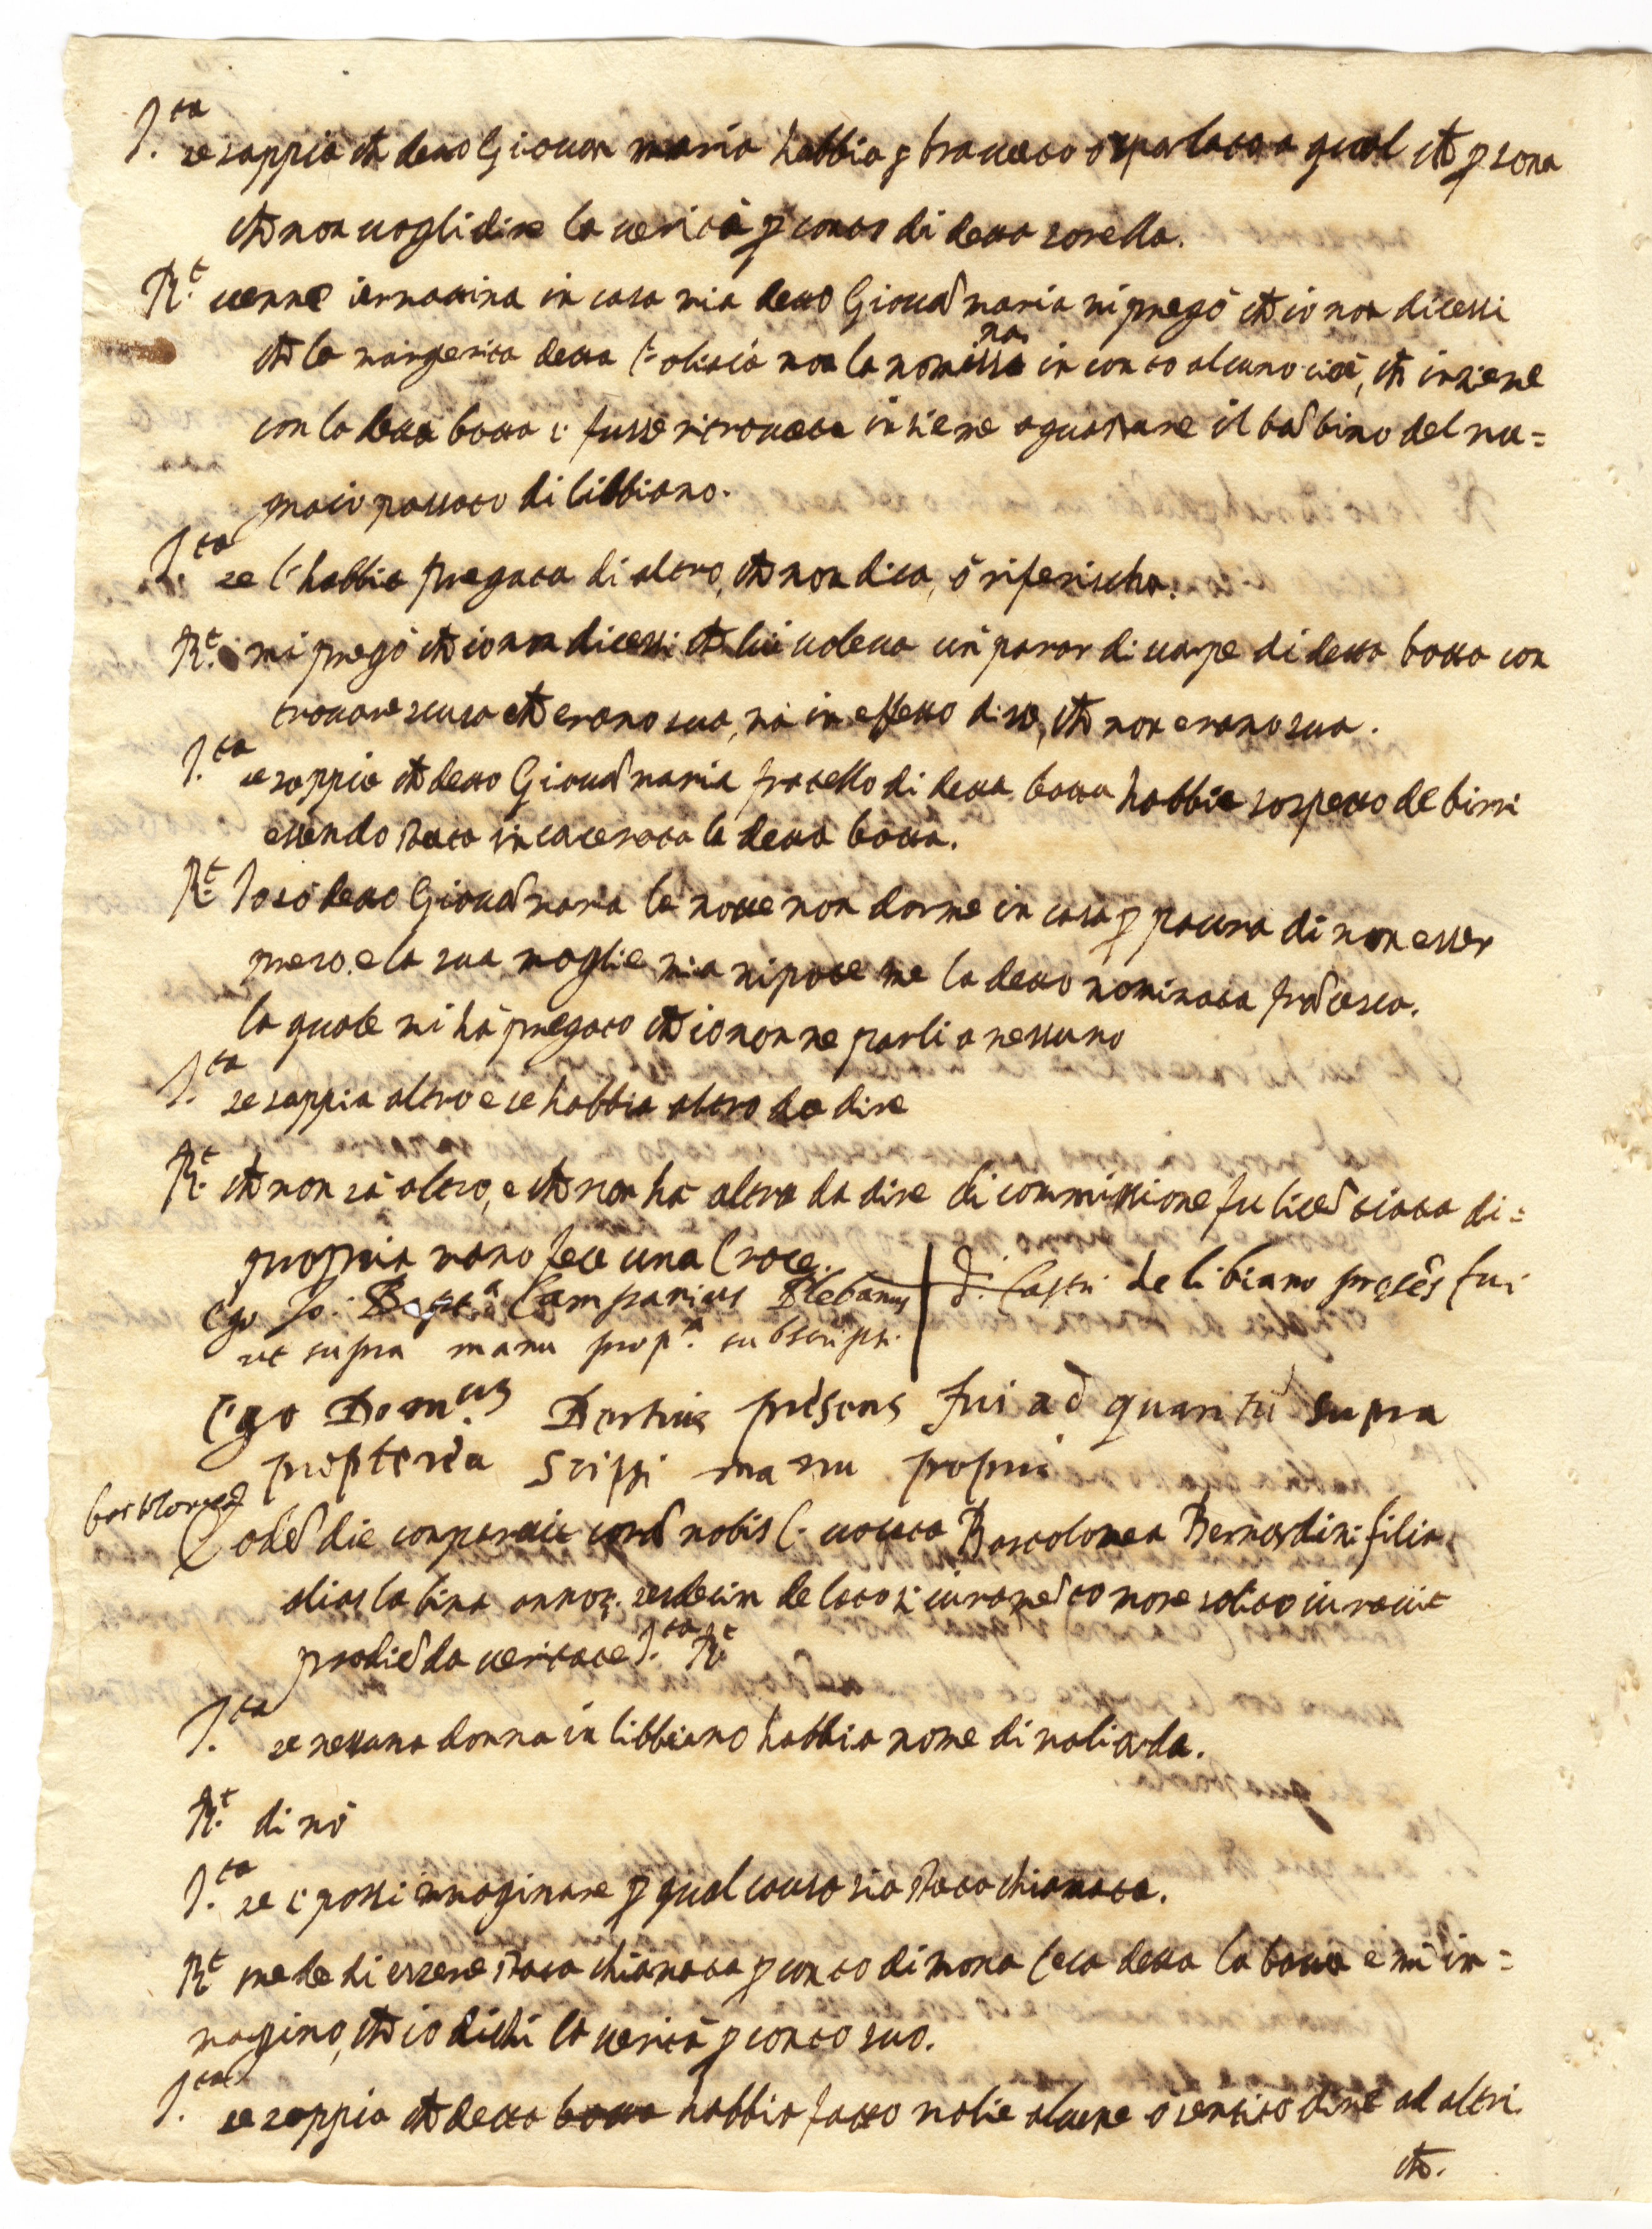 J.ta se sappia ch detto Giouan maria habbia p̱ trauato ò parlato a qual che p̱sona
che non uogli dire la uerità p̱ conto di detta sorella.
R.t uenne iermattina in casa mia detto Giouā maria mi pregò che io non dicessi
che la margerita detta non la nominassa in conto alcuno cioè, ch insieme
con la detta botta c fusse ritrouata insieme a guastare il bābino del mu=
gnaio passato di libbiano.
J.ta se l'habbia pregata di altro, che non dica, ò riferischa.
R.t mi pregò che io non dicessi che lui uoleua un paror di uarpe di detta botta con
trouare scusa che erano sua, mà in effetto disse, che non erano sua.
J.ta se sappia che detto Giouā maria fratello di detta botta habbia sospetto de birri
essendo stata incacerata la detta botta.
R.t Io sò detto Giouā maria la notte non dorme in casa p̱ paura di non esser
preso. e la sua moglie mia nipote me la detto nominata frācesca.
la quale mi hà pregato che io non ne parli a nessuno
J.ta se sappia altro e se habbia altro da dire
R.t che non sà altro, e che non hà altro da dire di commissione fu licētiata di=
propria mano fece una Croce.
Ego Jo: Bapt.a Campanius Plebanus d. Castri de libiano presēs fui
ut supra manu prop.a subscripsi.
Ego Dom.cus presens fui ad quantū supra
propterea scripsi manu propri
bartolomea
Eodē die comparuit corā nobis C. uocata Bartolomea Bernardini filia
alias la tina annoꝝ. sesdecim de loco iuramēto more solito iurauit
pro diēda ueritate J.ta R.t
J.ta se nessuna donna in libbiano habbia nome di maliarda.
R.t di nò
J.ta se c possi immaginare p̱ qual causa sia stata chiamata.
R.t crede di essere stata chiamata p̱ conto di mona Ceca detta la botta e mi im=
magino, che io dichi la uerità p̱ conto suo.
J.ta se sappia che detta botta habbia fatto malie alcune ò sentito dire ad altri.
che.